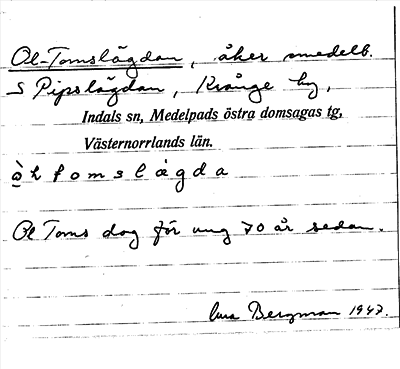 Ol-Tomslägdan, åker omedelb.
S Pipslägdan, Krånge by,
Indals sn, Medelpads östra domsagas tg,
Västernorrlands län.
Ol Toms dog för ung 70 år sedan.
Bergman 1947.